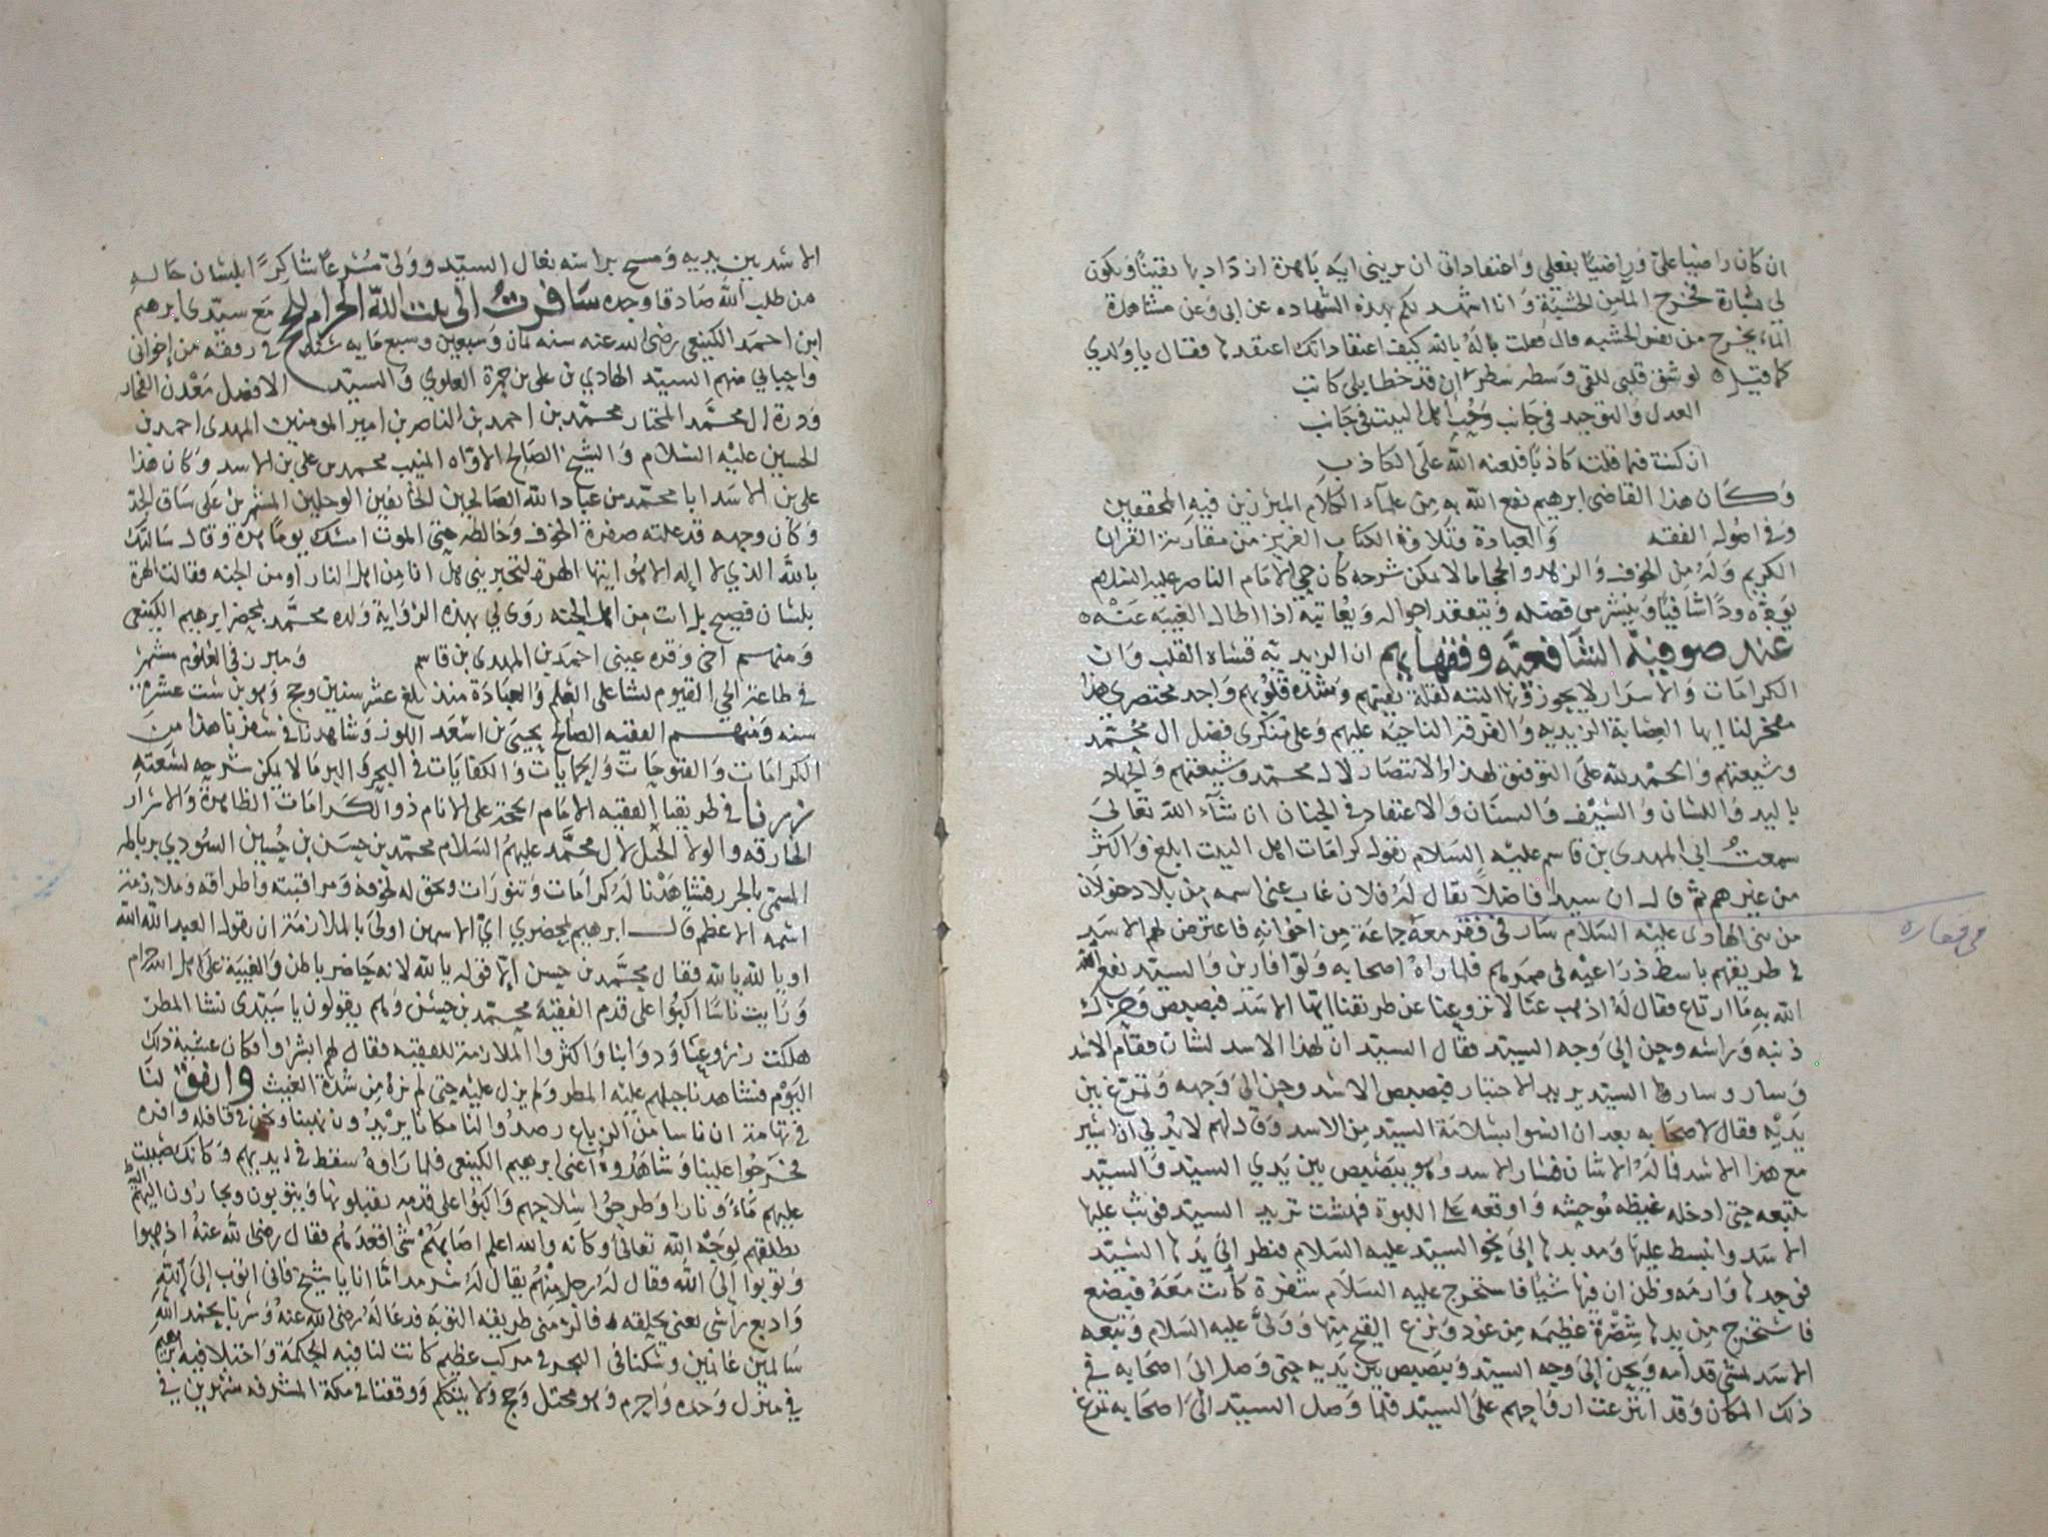 ان كان راضيا علي وراضيا بفعلي واعتقاداتي ان يريني اية باهرة ازداد بها يقينا ويكون
لي بشارة فخرج الماء من الخشبة وانا اشهد بكم بهذه الشهاده عن ابي وعن مشاهدة
الماء يخرج من نفس الخشبه قال فقلت بالله كيف اعتقاداتك اعتقدها فقال ياولدي
كما قيل ٥ لو شق قلبي للقى وسطه سطران قد خطا بلى كاتب
العدل والتوحيد في جانب وحب اهل البيت في جانب
ان كنت فيما قلته كاذبا فلعنه الله على الكاذب
وكان هذا القاضي ابرهيم نفع الله به من علماء الكلام المبرزين فيه المحققين
وفي اصول الفقه والعبادة وتلاوة الكتاب العزيز من مقارنة القران
الكريم وله من الخوف والزهد والحجا ما لا يمكن شرحه كان حي الامام الناصر عليه السلام
يوده ودا شافيا ويتفقد احواله ويعاتبه اذا اطال الغيبه عنه ٥
عند صوفية الشافعية وفقهائهم ان الزيديه قساة القلب وان
الكرامات والاسرار لا يجوزونها البته لقلة يقينهم وشدة قلوبهم واجد مختصري هذا
مفخر لنا ايها العصابة الزيديه والفرقة الناجية عليهم وعلى منكري فضل ال محمد
وشيعتهم والحمد لله على التوفيق لهذا والانتصار لال محمد وشيعتهم والجهاد
باليد واللسان والسيف والسنان والاعتقاد في الجنان ان شاء الله تعالى
سمعت ابي المهدي بن قاسم عليه السلام يقول كرامات اهل البيت ابلغ واكثر
من غيرهم ثم قال ان سيدا فاضلا يقال له فلان غاب عني اسمه من بلاد خولان
من بني الهادي عليه السلام سار في قفر معه جماعة من اخوانه فاعترض لهم الاسد
في طريقهم باسط ذراعيه في صدرهم فلما راه اصحابه ولوا فارين والسيد نفع
الله به ما ارتاع فقال له اذهب عنا لا تروعنا عن طريقنا ايها الاسد فبصبص وحرك
ذنبه وراسه وحن الى وجه السيد فقال السيد ان لهذا الاسد لشان فقام الاسد
وسار وسار السيد يريد الاختبار فبصبص الاسد وحن الى وجهه وتمرغ بين
يديه فقال لاصحابه بعد ان انسوا بسلامة السيد من الاسد وقال لهم لابد لي ان اسير
مع هذا الاسد فان له لشان فسار الاسد وهو يبصبص بين يدي السيد والسيد
يتبعه حتى ادخله غيظه موحشه واوقعه على اللبوة فهشت تريد السيد فوثب عليها
الاسد وانبسط عليها ومد يدها الى نحو السيد عليه السلام فنظر الى يدها السيد
فوجدها وارمه وظن ان فيها شيا فاستخرج عليه السلام شفرة كانت معه فبضع
فاستخرج من يدها شضرة عظيمه من عود ونزع القيح منها وولى عليه السلام وتبعه
الاسد يمشي قدامه ويحن الى وجه السيد ويبصبص بين يديه حتى وصل الى اصحابه في
ذلك المكان وقد انزعت ارواحهم على السيد فلما وصل السيد الى اصحابه تمرغ
في قفاره
الاسد بين يديه ومسح براسه نعال السيد وولى مسرعا شاكرا بلسان حاله
من طلب الله صادقا وجده سافرت الى بيت الله الحرام للحج مع سيدي ابرهيم
ابن احمد الكينعي رضي الله عنه سنه ثمان وسبعين وسبع مايه سنه في رفقه من اخواني
واحبابي منهم السيد الهادي بن علي بن حمزة العلوي والسيد الافضل معدن الفخار
ودرة ال محمد المختار محمد بن احمد بن الناصر بن امير المومنين المهدي احمد بن
الحسين عليه السلام والشيخ الصالح الاواه المنيب محمد بن علي بن الاسد وكان هذا
علي بن الاسد ابا محمد من عباد الله الصالحين الخائفين الوجلين المشمرين على ساق الجد
وكان وجهه قد علته صفرة الخوف وخالطه حتى الموت امسك يوما هرة وقال سالتك
بالله الذي لا اله الا هو ايتها الهرة لتخبريني هل انا من اهل النار او من الجنه فقالت الهرة
بلسان فصيح بل انت من اهل الجنه روى لي بهذه الرواية ولده محمد بمحضر ابرهيم الكينعي
ومنهم اخي وقرة عيني احمد بن المهدي بن قاسم ومبرز في العلوم مشمر
في طاعة الحي القيوم نشا على العلم والعبادة منذ بلغ عشر سنين وحج وهو بن ست عشرة
سنه ومنهم الفقيه الصالح يحيى بن اسعد اللوز وشاهدنا في سفرنا هذا من
الكرامات والفتوحات والحمايات والكفايات في البحر والبر ما لا يمكن شرحه لسعته
زرنا في طريقنا الفقيه الامام الحجة على الانام ذو الكرامات الظاهرة والاسرار
الخارقه والولا الجزل لال محمد عليهم السلام محمد بن حسن بن حسين السودي برباطه
المسمى بالحرر فشاهدنا له كرامات وتنورات وحق له لخوفه ومراقبته واطراقه وملازمة
اسمه الاعظم قال ابرهيم بمحضري اي الاسمين اولى بالملازمة ان يقول العبد الله الله
او يا لله يا لله فقال محمد بن حسن ايما قوله يا لله لانه حاضر باطن والغيبة على اهل الله حرام
ورايت ناسا اكبوا على قدم الفقيه محمد بن حسن وهم يقولون يا سيدي نشا المطر
هلكت زروعنا ودوابنا واكثروا الملازمة للفقيه فقال لهم ابشروا فكان عشية ذلك
اليوم فشاهدنا جبلهم عليه المطر ولم يزل عليه حتى لم نره من شدة الغيث واتفق لنا
في تهامة ان ناسا من الزباع رصدوا لنا مكانا يريدون نهبنا ونحن في قافله وافره
فخرجوا علينا وشاهدوه اعني ابرهيم الكينعي فلما راوه سقط في ايديهم وكانك صببت
عليهم ماء ونارا وطرحوا سلاحهم واكبوا على قدمه يقبلونها ويتوبون ويجارون اليهم
يطلقهم لوجه الله تعالى وكانه والله اعلم اصابهم شي اقعدهم فقال رضي الله عنه اذهبوا
وتوبوا الى الله فقال له رجل منهم يقال له سرمد اما انا يا شيخ فاني اتوب الى الله
واديع راسي يعني يحلقه ٥ فالزمني طريقه التوبه فدعا له رضي الله عنه وسرنا بحمد الله
سالمين غانمين وسكنا في البحر في مركب عظيم كانت لنا فيه الحكمة واختلا فيه ابرهيم
في منزل وحده واحرم وهو محتل وحج ولا يتكلم ووقفنا في مكة المشرفه شهرين في